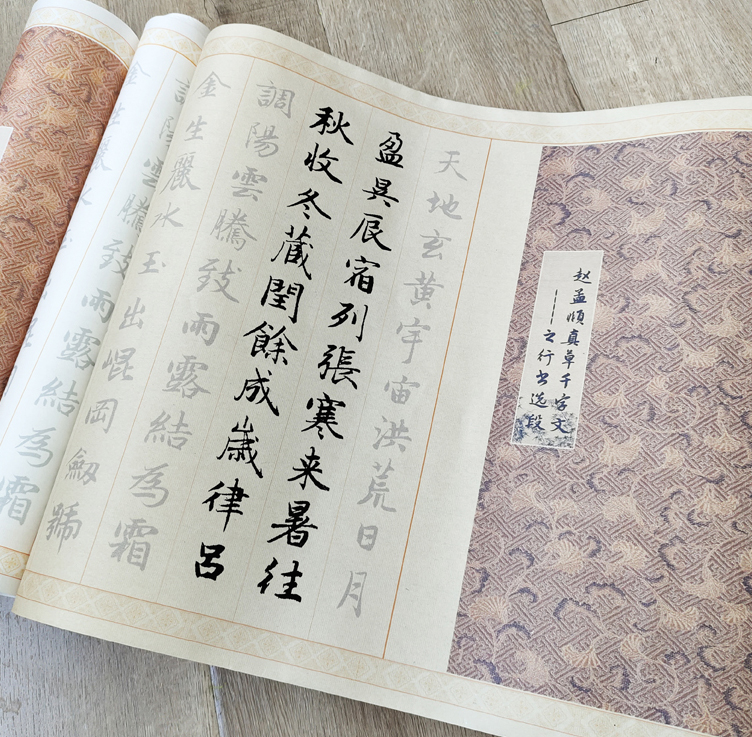 赵孟頫真草千字文
——之行书选段
天地玄黄宇宙洪荒日月
盈昃辰宿列張寒来暑往
秋收冬蔵閏餘成歲律呂
調陽雲騰致雨露結為霜
金生麗水玉出崐岡劒號
陽雲騰致雨露結為霜
金生麗水